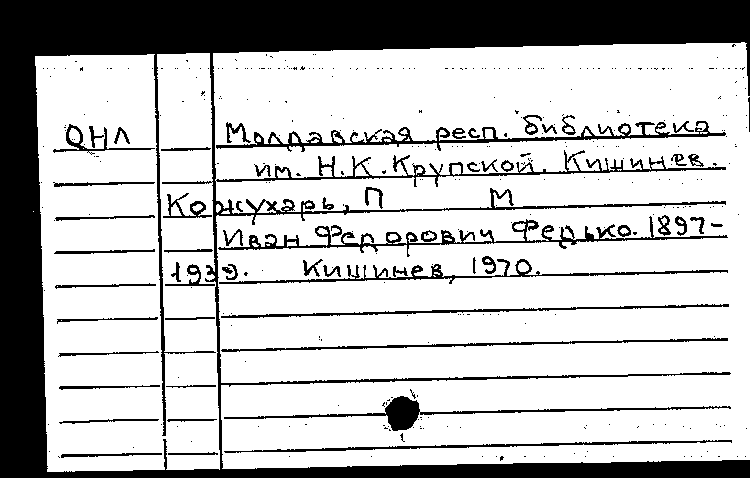 QHЛ Молдавская респ. библиотека
им. Н.К.Крупской. Кишинев.
Кожухарь, П М
Иван Федорович Федько. 1897-
1939. Кишинев, 1970.